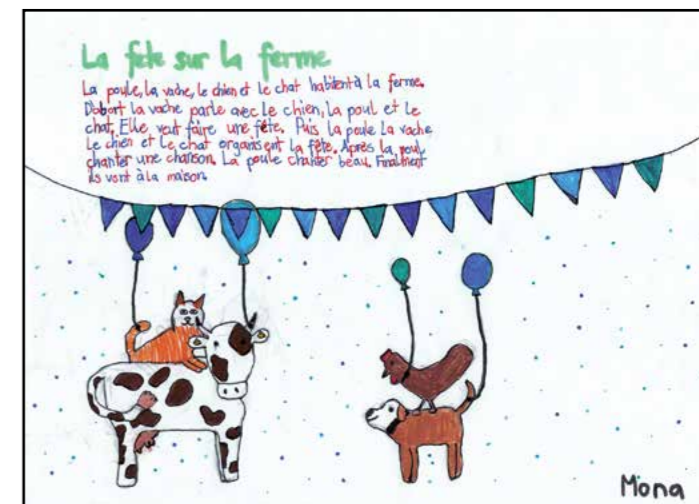 La fête sur la ferme
La poule, la vache, le chien et le chat habitent à la ferme.
D'abort la vache parle avec le chien, la poul et le
chat. Elle veut faire une fête. Puis la poule la vache
le chien et le chat organisent la fête. Après la poul
chanter une chanson. La poule chanter beau. Finalment
ils vont à la maison.
Mona